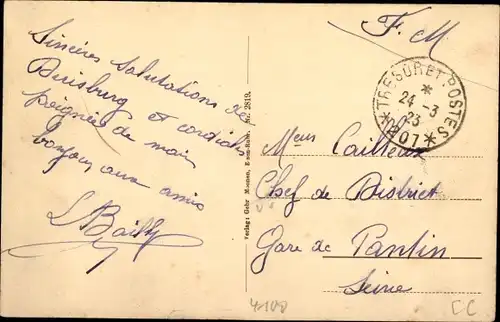 Sincères salutations de
Duisburg et cordiale
poignée de main
bonjour aux amis
L Bailly
Verlag: Gebr Moenen, Essen-Ruhr. Nr. 2819.
F. M.
* TRESOR ET POSTES *
*
24 -3
23
207
Meur Cailleux
Chef de District
Gare de Pantin
Seine
4100
CC